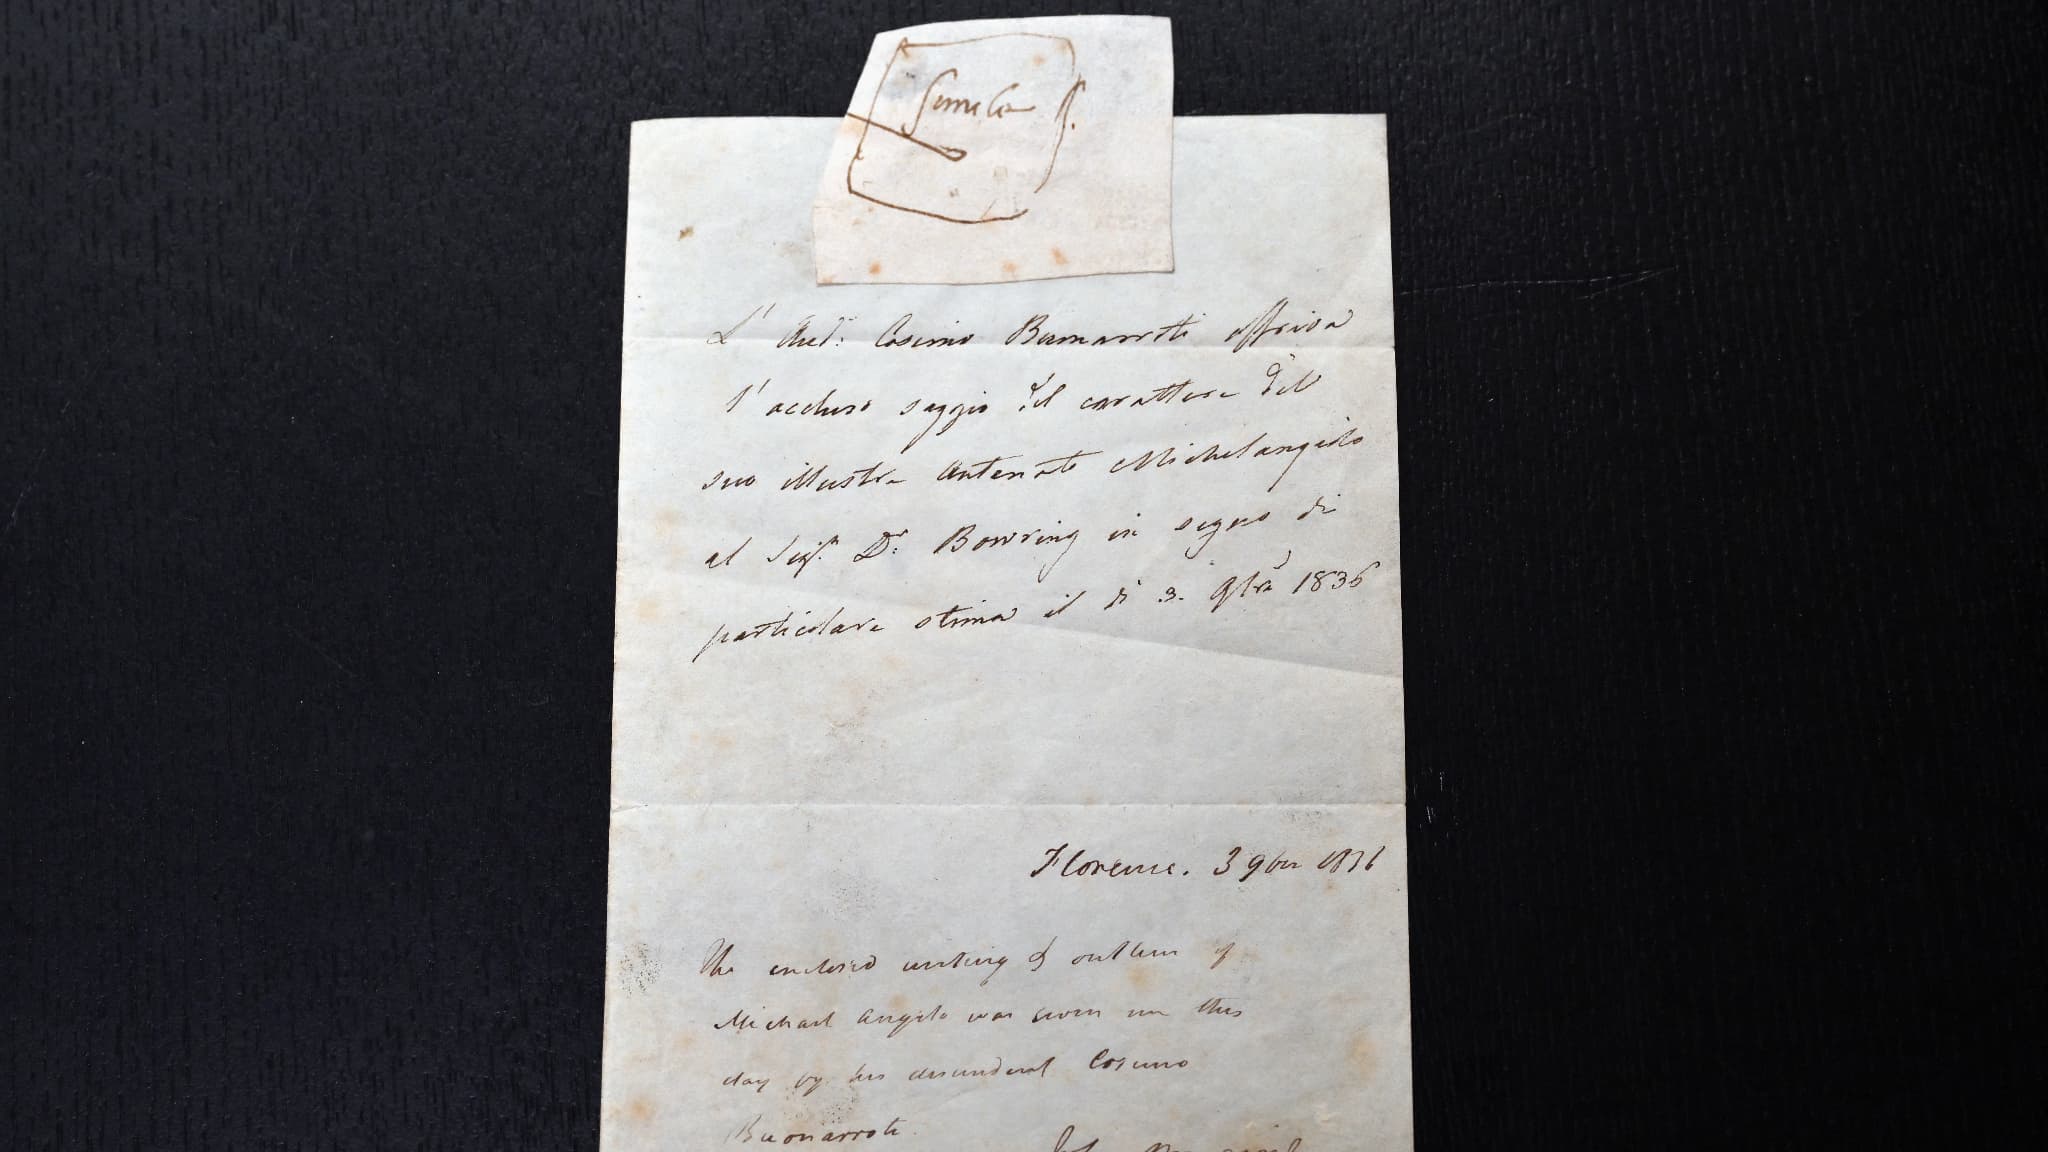 simile
L' Aud.: Cosimo Buonarroti offriva
l' accluso saggio del carattere del
suo illustre Antenato Michelangiolo
al Sigr. Dr. Bowring in segno di
particolare stima il dì 3. 9bre 1836
Florence. 3 9ber 1836
The enclosed writing & outline of
Michael Angelo was given me this
day by his descendant Cosimo
Buonarroti.